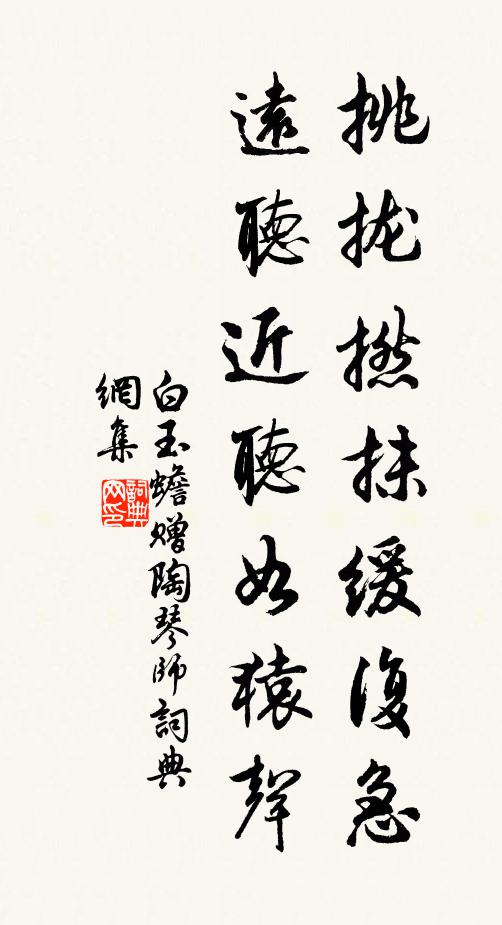 挑拢撚抹緩復急
遠聽近聽如猿聲
白玉蟾贈陶琴師詞典
網集
詞典網印